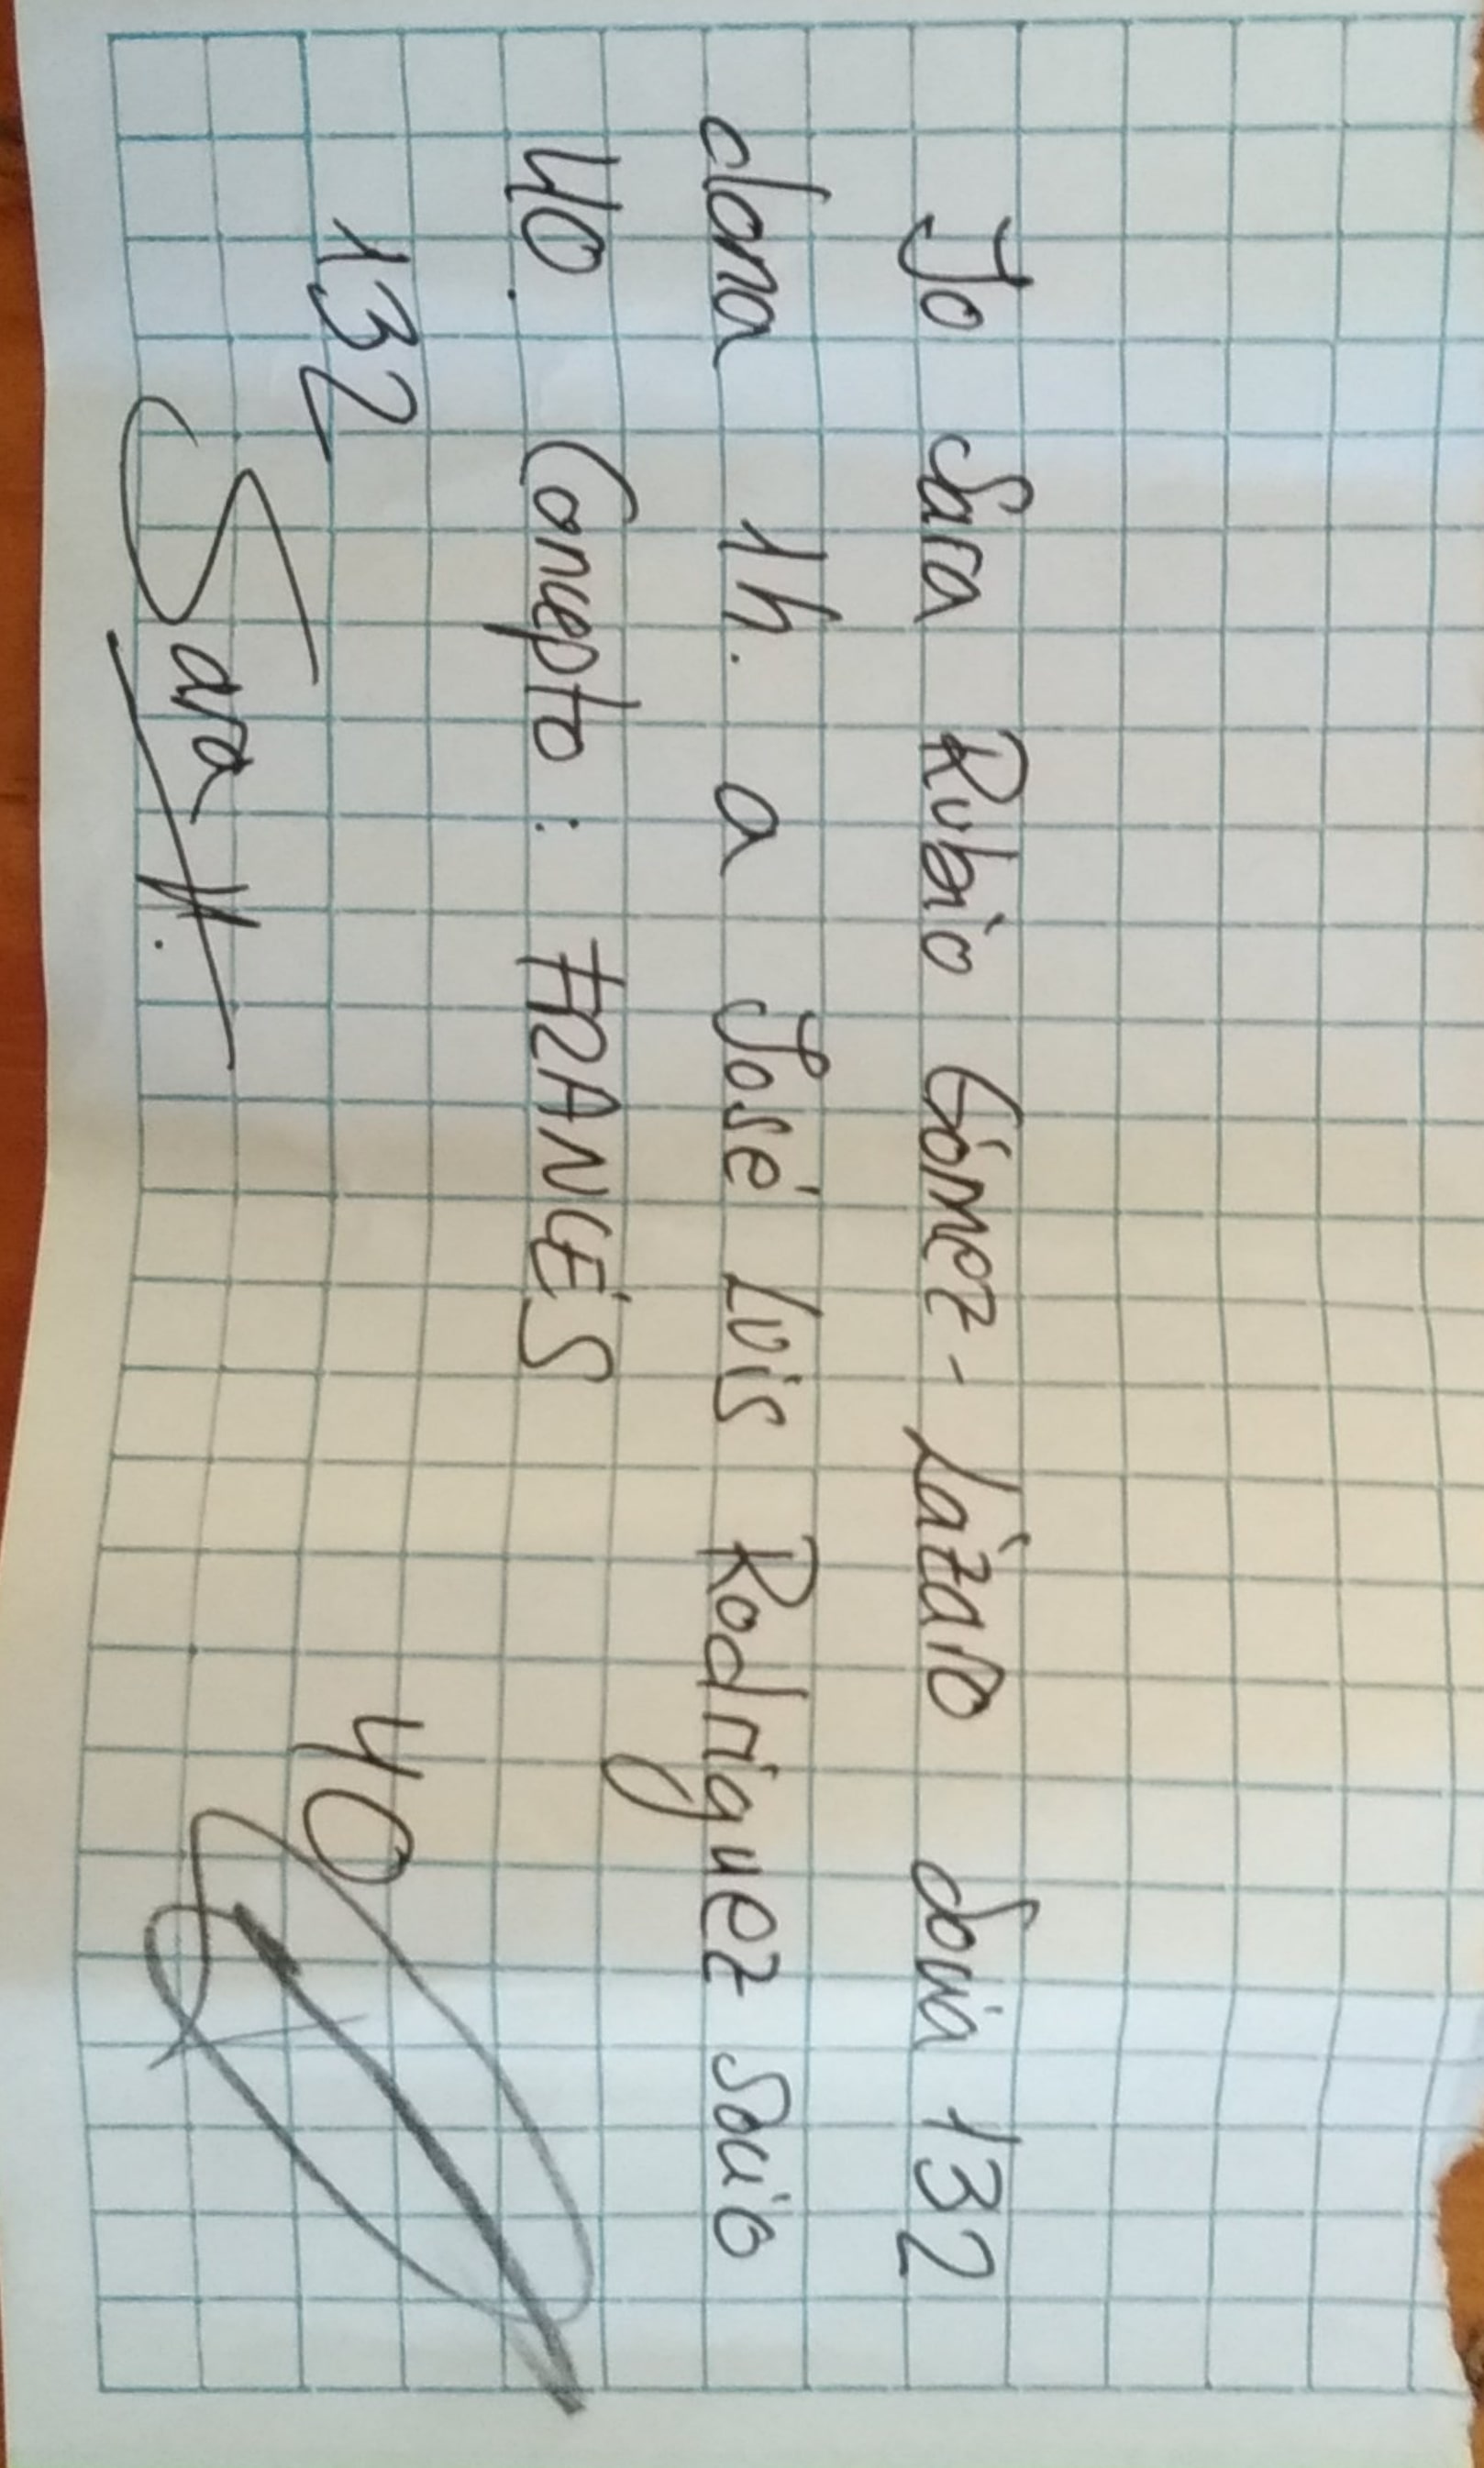 Jo Sara Rubio Gómez-Lázaro Socia 132
dona 1h. a José Luis Rodriguez Socio
40. Concepto: FRANCÉS
132
40
Sara